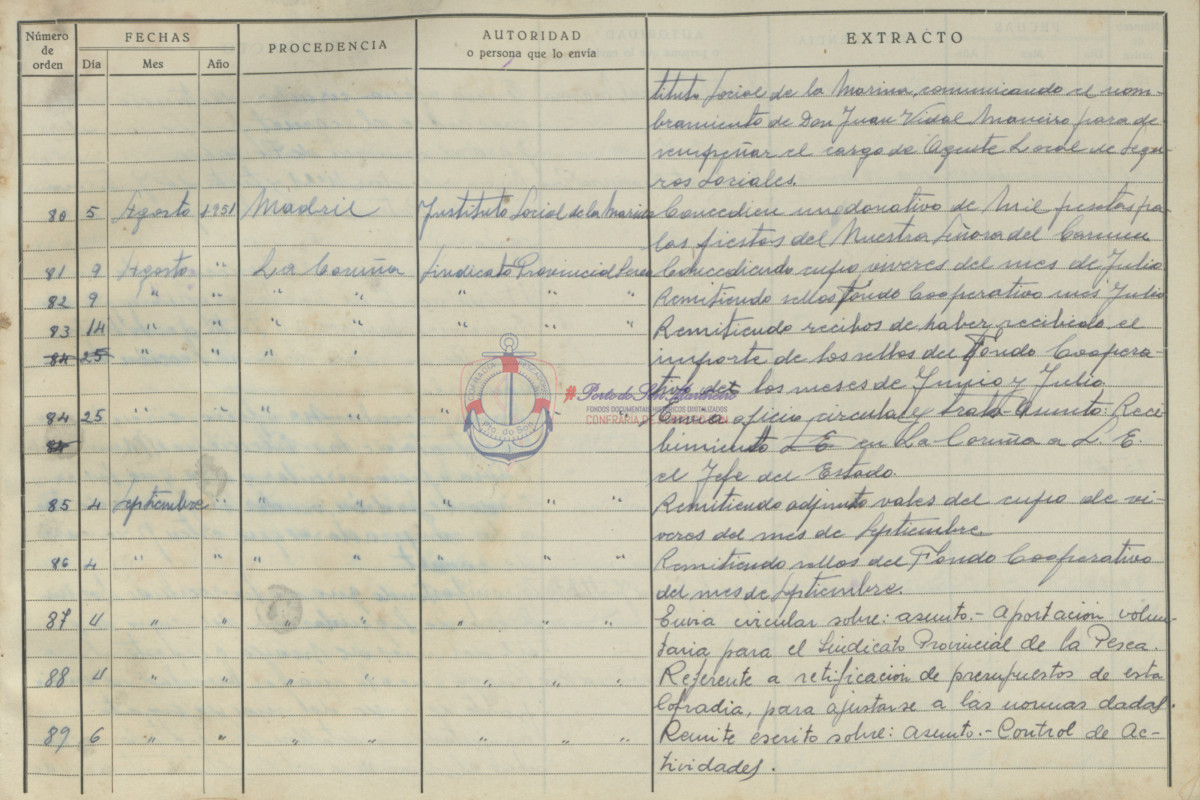 Número de orden FECHAS PROCEDENCIA AUTORIDAD EXTRACTO
Día Mes Año o persona que lo envía
tituto Social de la Marina, comunicando el nom-
bramiento de Don Juan Vidal Maneiro para de-
sempeñar el cargo de Agente Local de Segu-
ros Sociales.
80 5 Agosto 1951 Madril Instituto Social de la Marina Concedien un donativo de mil pesetas pa-
las fiestas del Nuestra Señora del Carmen
81 9 Agosto " La Coruña Sindicato Provincial Pesca Concediendo cupo viveres del mes de Julio
82 9 " " " " " " " Remitiendo sellos Fondo Cooperativo mes Julio
83 14 " " " " " " " Remitiendo recibos de haber recibido el
84 25 " " " " importe de los sellos del Fondo Coopera-
tivo de los meses de Junio y Julio
84 25 " " " " " " " Envia oficio circular trata-Asunto: Reci-
84 bimiento S.E. en La Coruña a S. E.
el Jefe del Estado.
85 4 Septiembre " " " " " " Remitiendo adjunto vales del cupo de vi-
veres del mes de Septiembre.
86 4 " " " " " " " Remitiendo sellos del Fondo Cooperativo
del mes de Septiembre.
87 4 " " " " " " " Envia circular sobre: asunto.- Aportación volun-
taria para el Sindicato Provincial de la Pesca.
88 4 " " " " " " " Referente a retificación de presupuestos de esta
Cofradia, para ajustarse a las normas dadas.
89 6 " " " " " " " Remite escrito sobre: asunto.- Control de Ac-
tividades.
Porto do Son Mariñeiro
FONDOS DOCUMENTAIS HISTÓRICOS DIXITALIZADOS
Pto. do Son